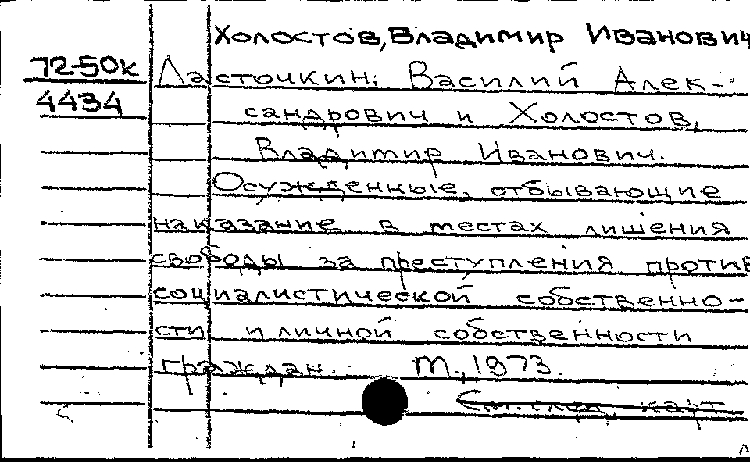 Холостов, Владимир Иванович
72-50к
4434
Ласточкин, Василий Алек-
сандрович и Холостов,
Владимир Иванович.
Осужденные, отбывающие
наказание в местах лишения
свободы за преступления против
социалистической собственно-
сти и личной собственности
граждан. М., 1973.
См. след. карт.